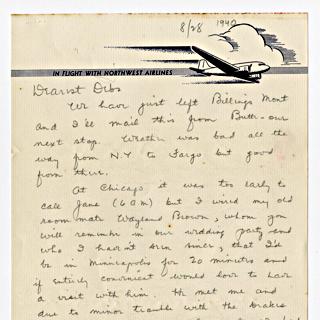 8/28 1940
IN FLIGHT WITH NORTHWEST AIRLINES
Dearest Dibs
We have just left Billings Mont
and I'll mail this from Butte - our
next stop. Weather was bad all the
way from N.Y to Fargo, but good
from there.
At Chicago it was too early to
call Jane (6 AM) but I wired my old
room mate Wayland Brown, whom you
will remember in our wedding party and
who I haven't seen since, that I'd
be in Minneapolis for 20 minutes and
if entirely convenient would love to have
a visit with him. He met me and
due to minor trouble with the brakes